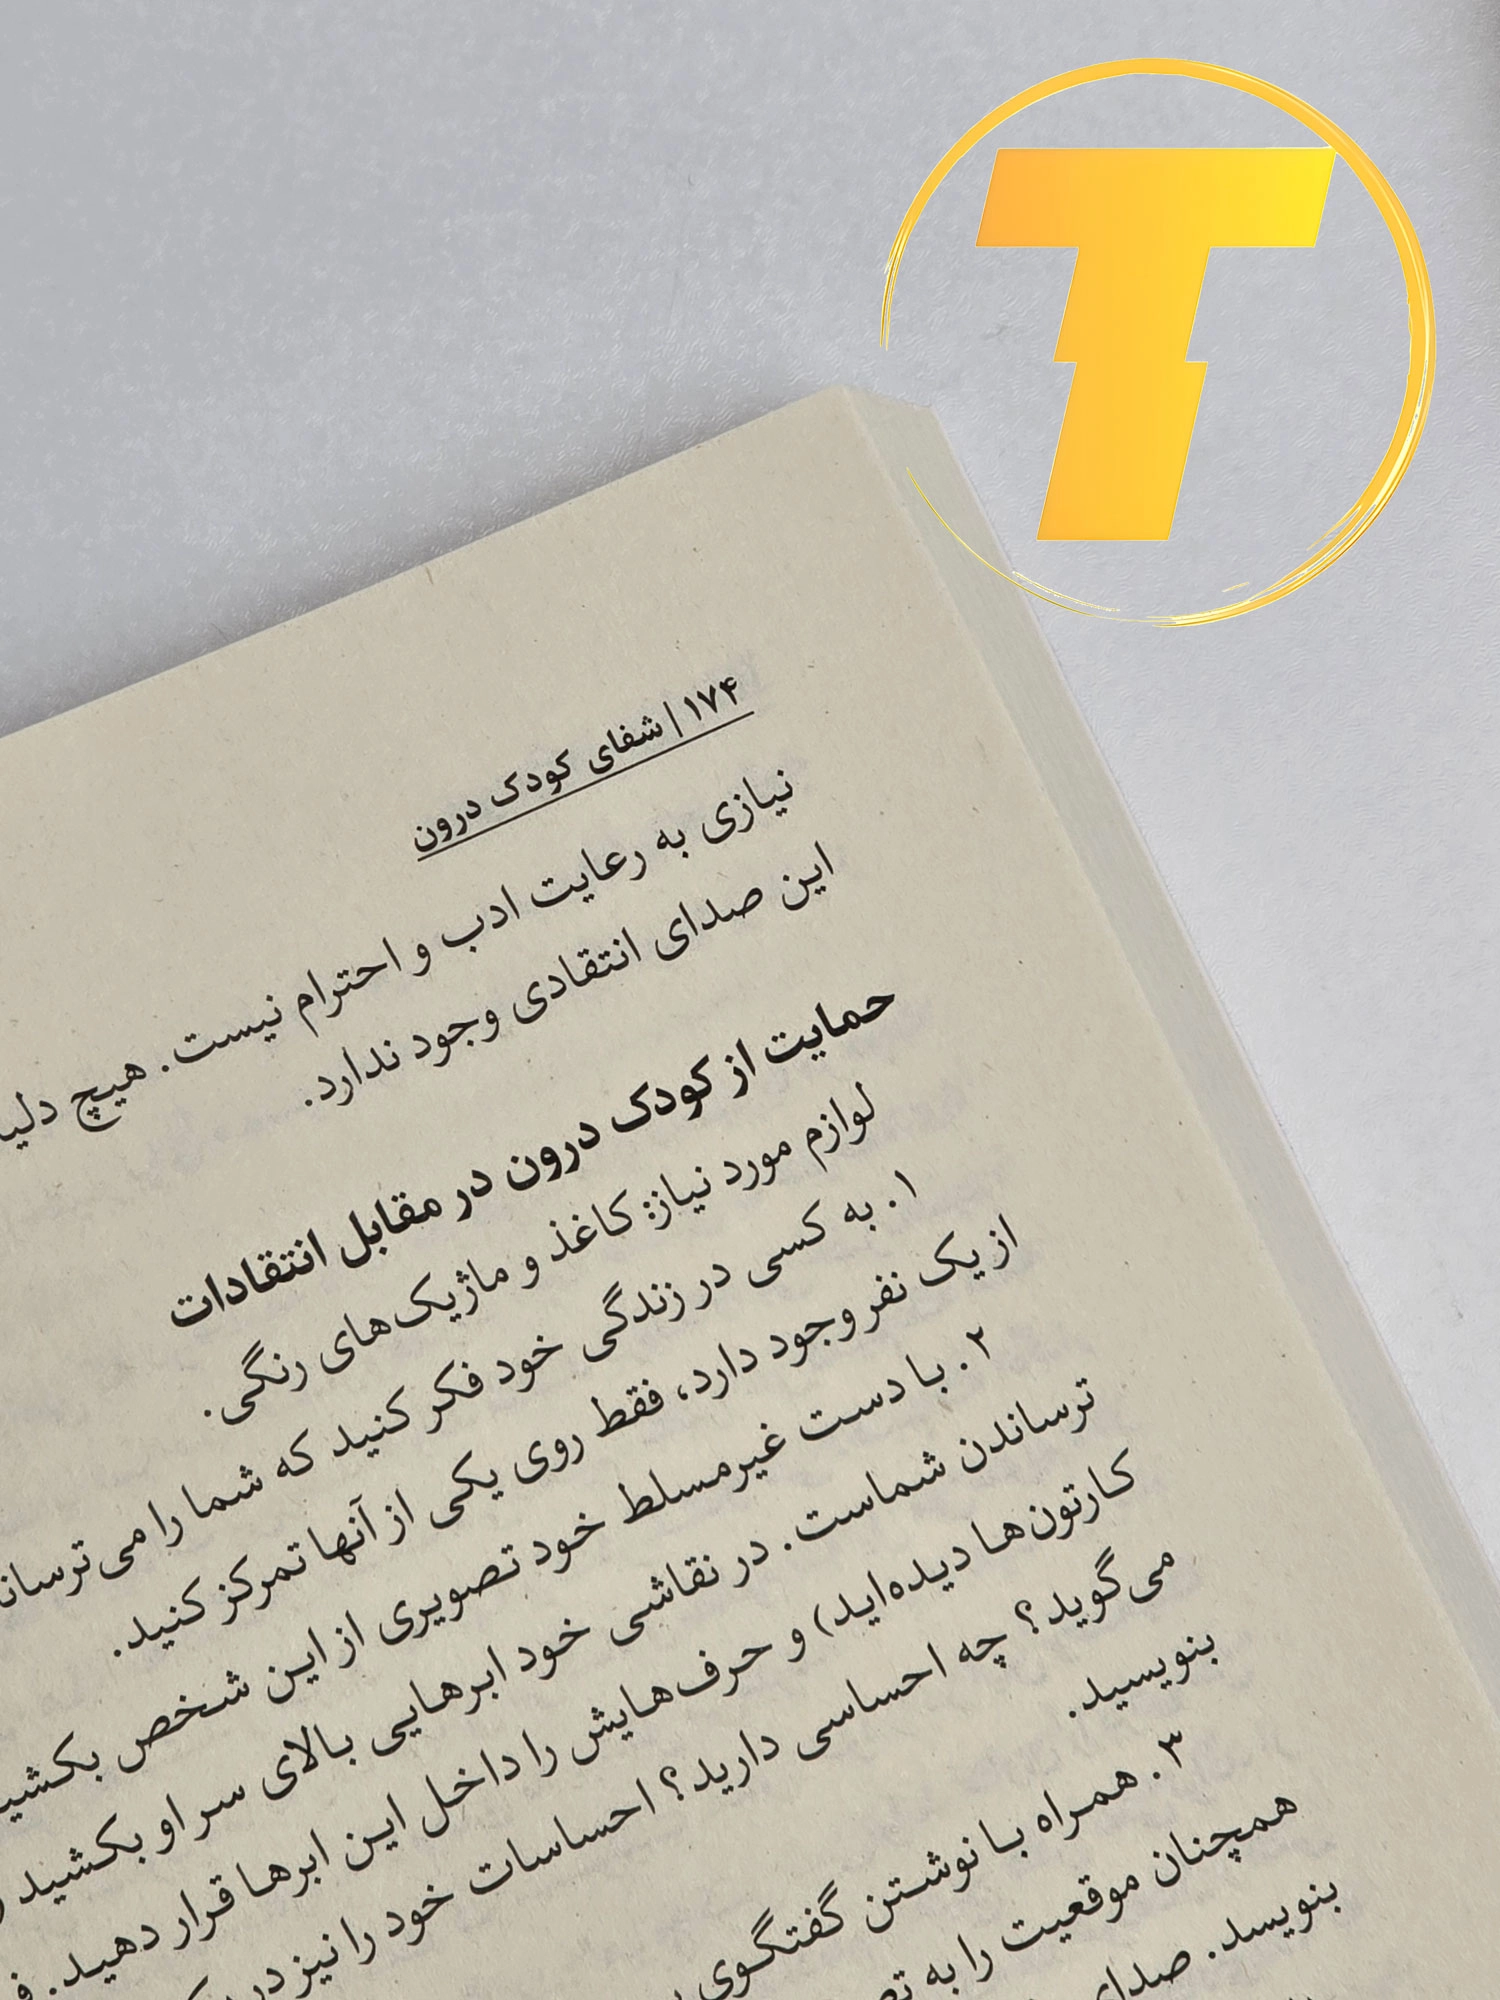 T
۱۷۴ | شفای کودک درون
نیازی به رعایت ادب و احترام نیست. هیچ
این صدای انتقادی وجود ندارد.
حمایت از کودک درون در مقابل انتقادات
لوازم مورد نیاز: کاغذ و ماژیک‌های رنگی.
۱. به کسی در زندگی خود فکر کنید که شما را
از یک نفر وجود دارد، فقط روی یکی از آنها تمرکز کنید.
۲. با دست غیرمسلط خود تصویری از این شخص
ترساندن شماست. در نقاشی خود ابرهایی بالای سر او بکشید
کارتون‌ها دیده‌اید) و حرف‌هایش را داخل این ابرها قرار دهید.
می‌گوید؟ چه احساسی دارید؟ احساسات خود را نیز در
بنویسید.
۳. همراه با نوشتن گفتگوی
همچنان موقعیت را به
بنویسد. صدای